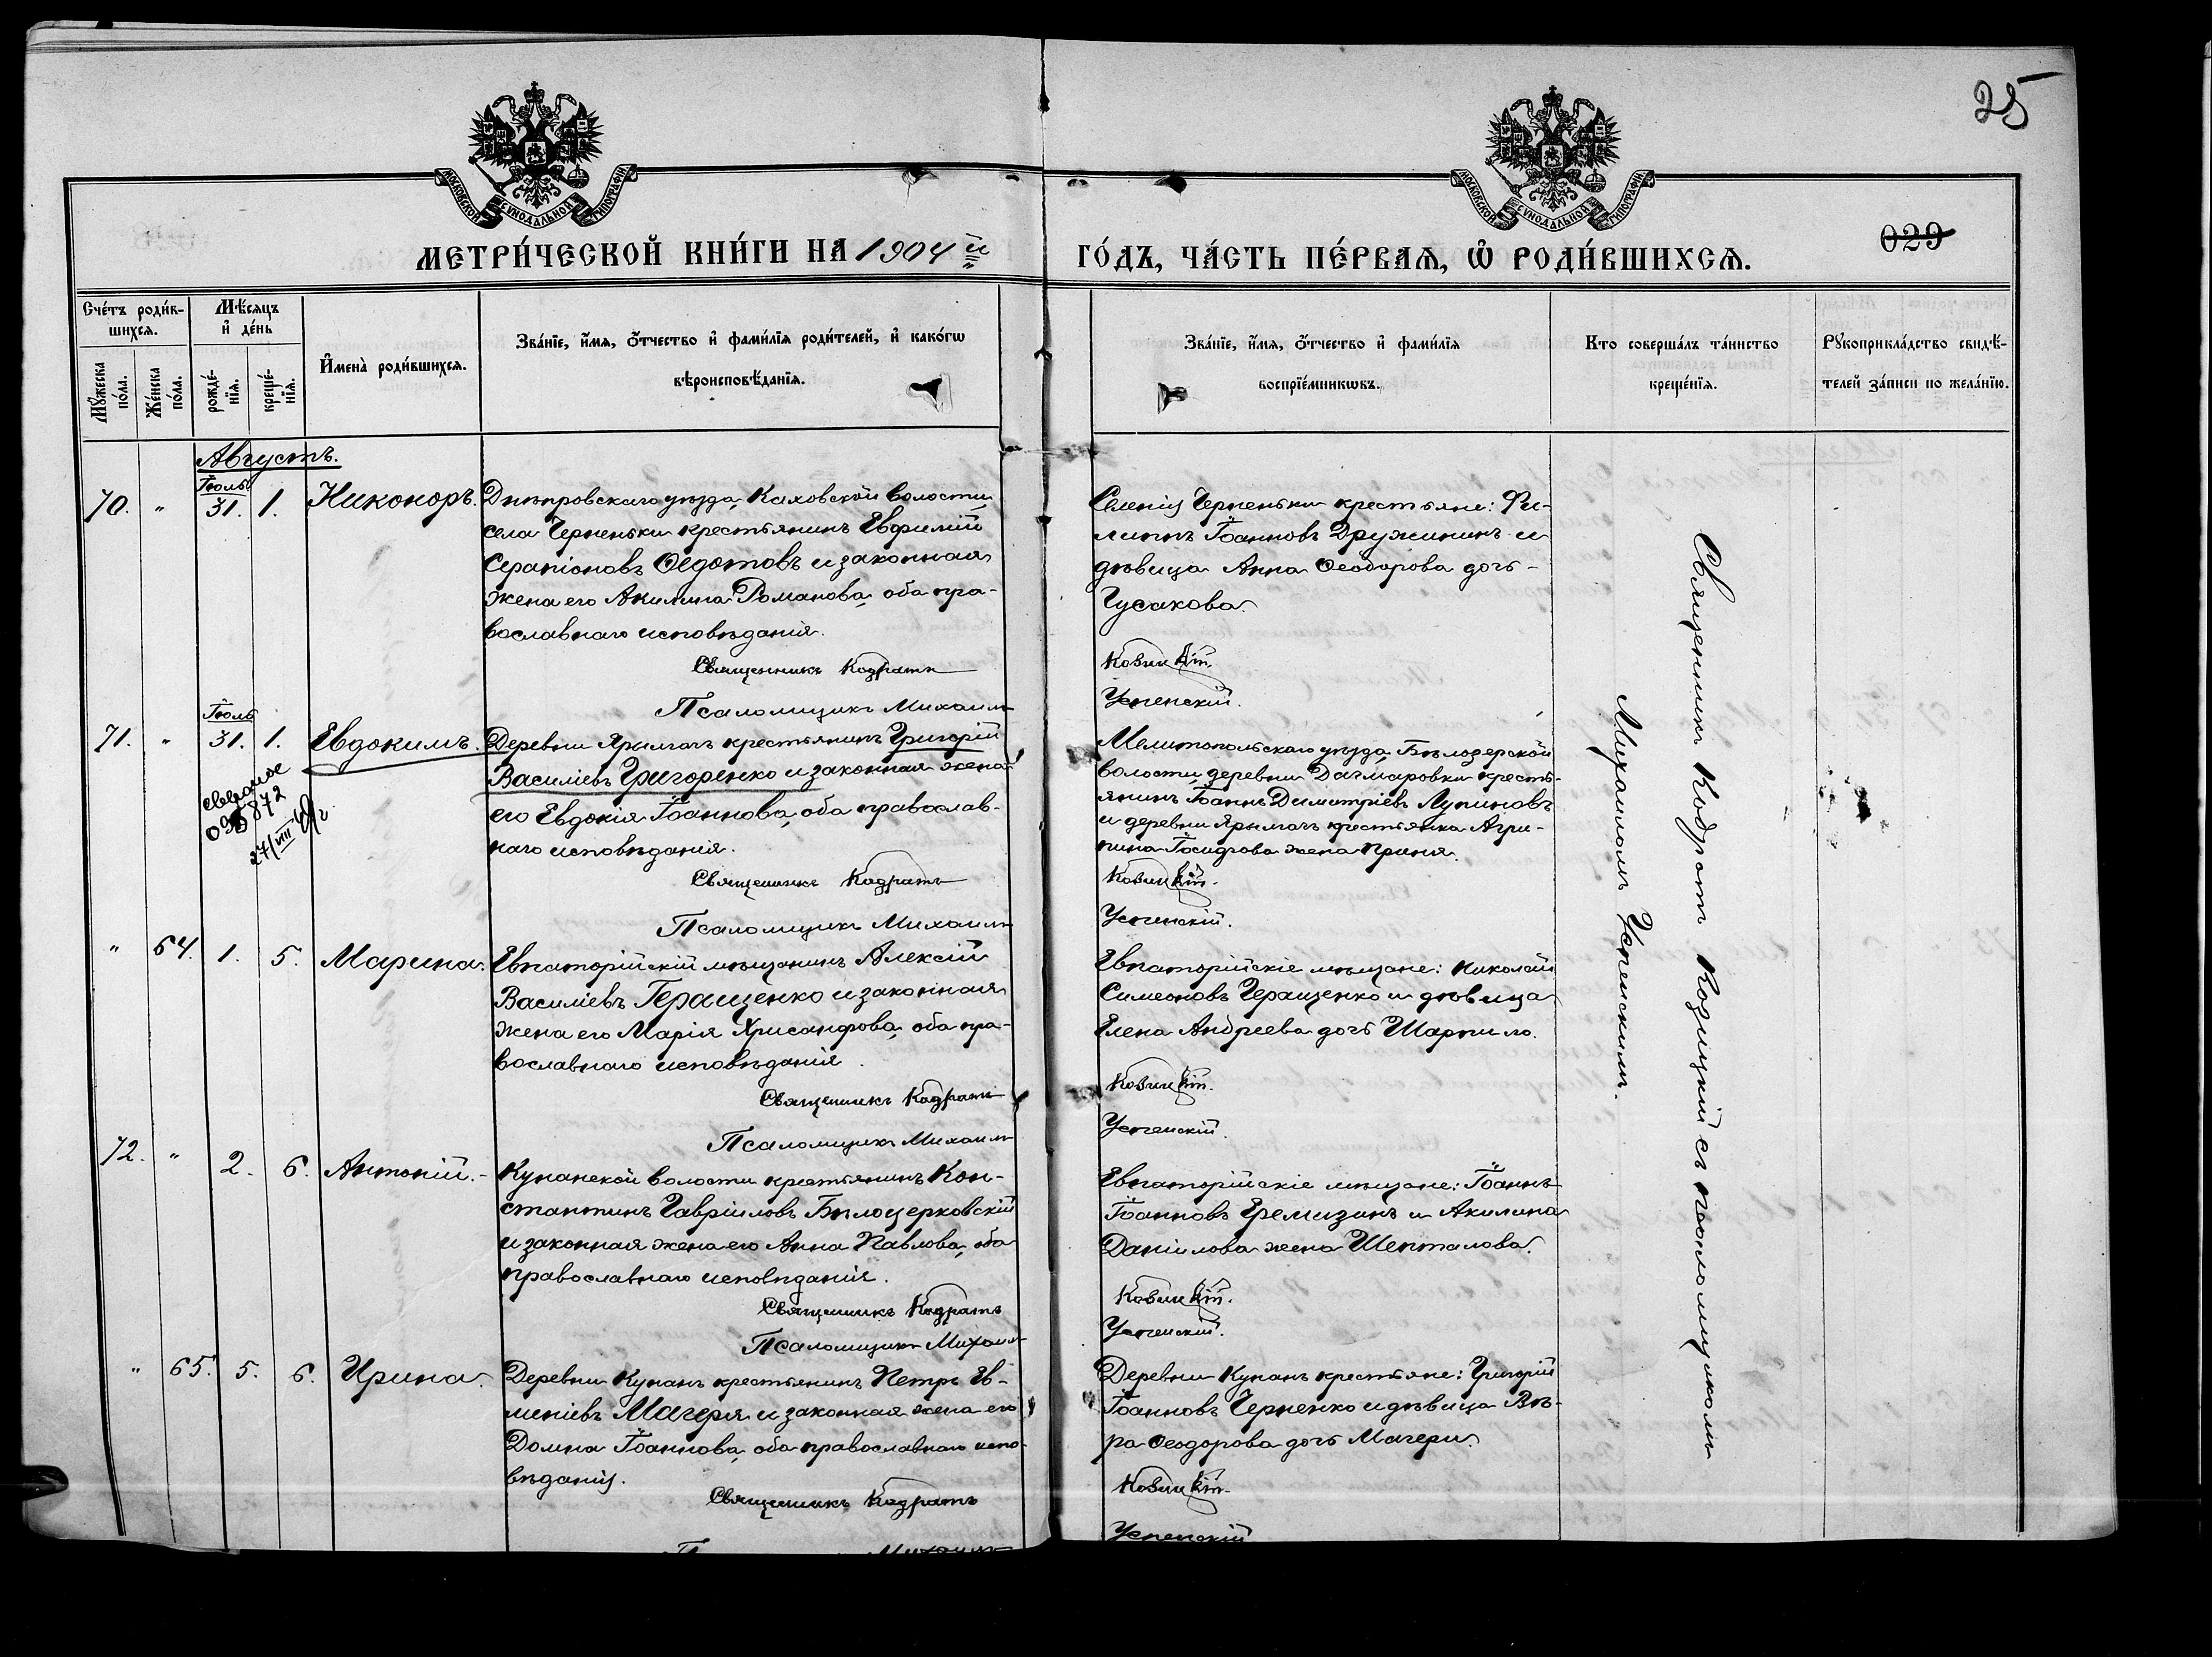 25
МОСКОВСКОЙ СѴНОДАЛЬНОЙ ТИПОГРАФІИ
МОСКОВСКОЙ СѴНОДАЛЬНОЙ ТИПОГРАФІИ
МЕТРИ́ЧЕСКОЙ КНИ́ГИ НА 1904 й
ГО́ДЪ, ЧА́СТЬ ПЕ́РВАѦ, Ѡ҆ РОДИ́ВШИХСѦ.
029
Сче́тъ роди́вшихся.
Мѣ́сяцъ и҆ де́нь
Мꙋ́жеска по́ла.
Же́нска по́ла.
рожде́нїя.
креще́нїя.
И҆мена̀ роди́вшихся.
Зва́нїе, и҆́мя, ѻ҆́тчество и҆ фами́лїя роди́телей, и҆ како́гѡ
вѣроисповѣ́данїя.
Зва́нїе, и҆́мя, ѻ҆́тчество и҆ фами́лїя
воспрїе́мникѡвъ.
Кто соверша́лъ та́инство
креще́нїя.
Рꙋкоприкла́дство свидѣ́телей за́писи по жела́нїю.
Августъ.
70. " Іюль 31. 1. Никоноръ.
Днѣпровскаго уѣзда, Каховской волости,
села Черненьки крестьянинъ Евфимій
Серапіоновъ Ѳедотовъ и законная
жена его Акилина Романова, оба пра-
вославнаго исповѣданія.
Священникъ Кодратъ
Псаломщикъ Михаилъ
Селенія Черненьки крестьяне: Фи-
липпъ Іоанновъ Дружининъ и
дѣвица Анна Ѳеодорова дочь -
Гусакова.
Козицкій.
Успенскій.
71. " Іюль 31. 1. Евдокимъ.
27/VIII
Деревни Ярымачъ крестьянинъ Григорій
Василіевъ Григоренко и законная жена
его Евдокія Іоаннова, оба православ-
наго исповѣданія.
Священникъ Кодратъ
Псаломщикъ Михаилъ
Мелитопольскаго уѣзда, Бѣлозерской
волости, деревни Дагмаровки кресть-
янинъ Іоаннъ Димитріевъ Лупиновъ
и деревни Ярымачъ крестьянка Агри-
пина жена
Козицкій.
Успенскій.
" 64. 1. 5. Марина.
Евпаторійскій мѣщанинъ Алексій
Василіевъ Геращенко и законная
жена его Марія Хрисанфова, оба пра-
вославнаго исповѣданія.
Священникъ Кодратъ
Псаломщикъ Михаилъ
Евпаторійскіе мѣщане: Николай
Симеоновъ Геращенко и дѣвица
Елена Андреева дочь Шарпило.
Козицкій.
Успенскій.
72. " 2. 6. Антоній.-
Кунанской волости крестьянинъ Кон-
стантинъ Гавріиловъ Бѣлоцерковскій
и законная жена его Анна Павлова, оба
православнаго исповѣданія.
Священникъ Кодратъ
Псаломщикъ Михаилъ
Евпаторійскіе мѣщане: Іоаннъ
Іоанновъ Еремизинъ и Акилина
Даніилова жена Шепталова.
Козицкій.
Успенскій.
" 65. 5. 6. Ирина.
Деревни Кунанъ крестьянинъ Петръ Ев-
меніевъ Магеря и законная жена его
Домна Іоаннова, оба православнаго испо-
вѣданія.
Священникъ Кодратъ
Деревни Кунанъ крестьяне: Григорій
Іоанновъ Черненко и дѣвица Вѣ-
ра Ѳеодорова дочь Магери.
Козицкій.
Успенскій
Священникъ Кодратъ Козицкій съ псаломщикомъ
Михаиломъ Успенскимъ.